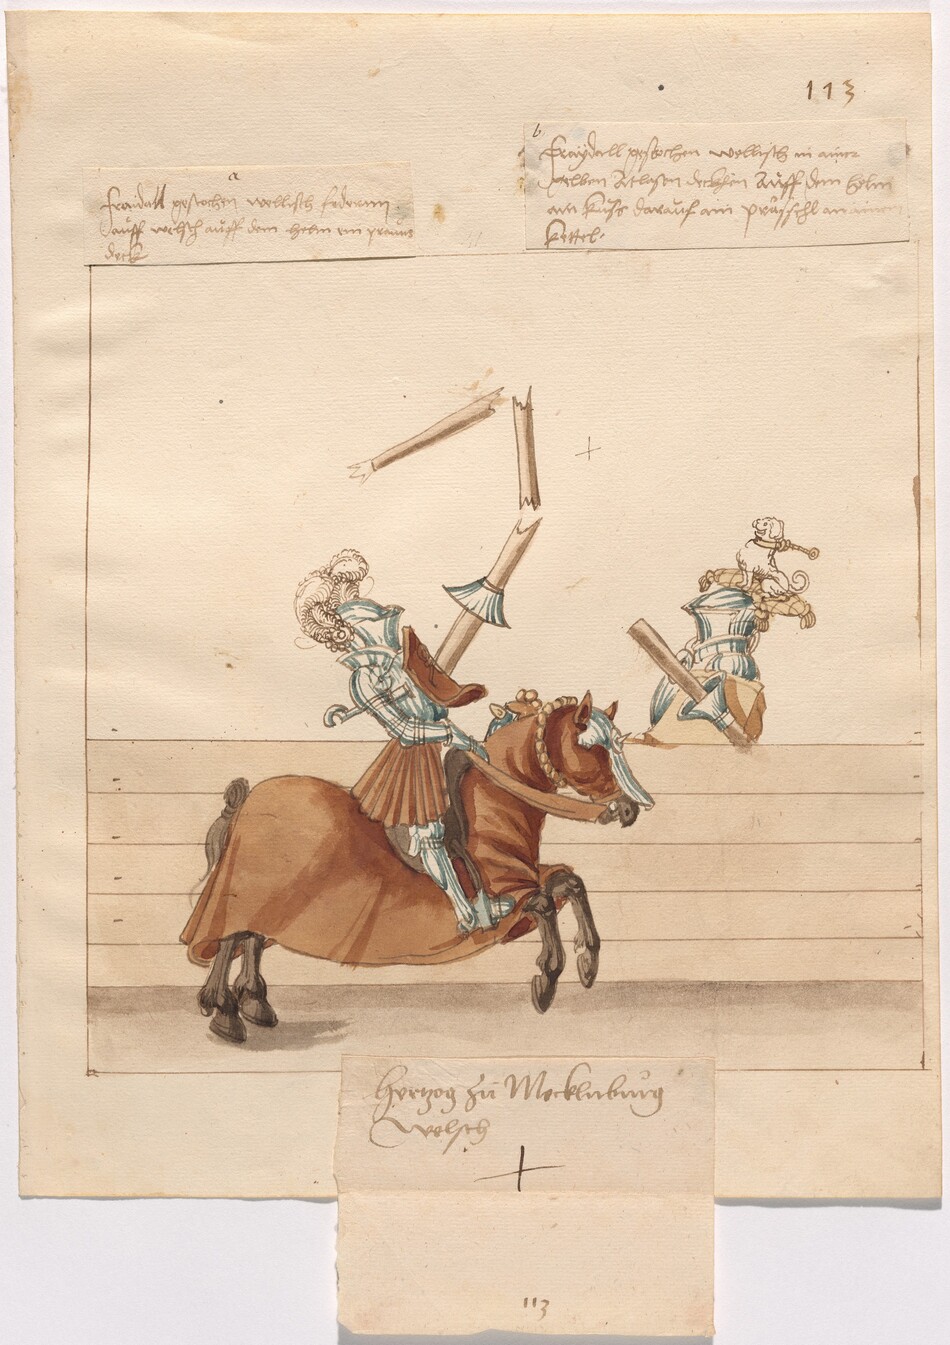 113
a
fraydall gestochen wellisch federnn
auff welsch auff dem helm ein praune
deck
b
Fraÿdall gestochen wellisch in ainer
gelben Atlasen deckhen Auff dem helm
ain kuss darauf ain
kettel.
Hertzog zu Mecklnburg
Welsch
113